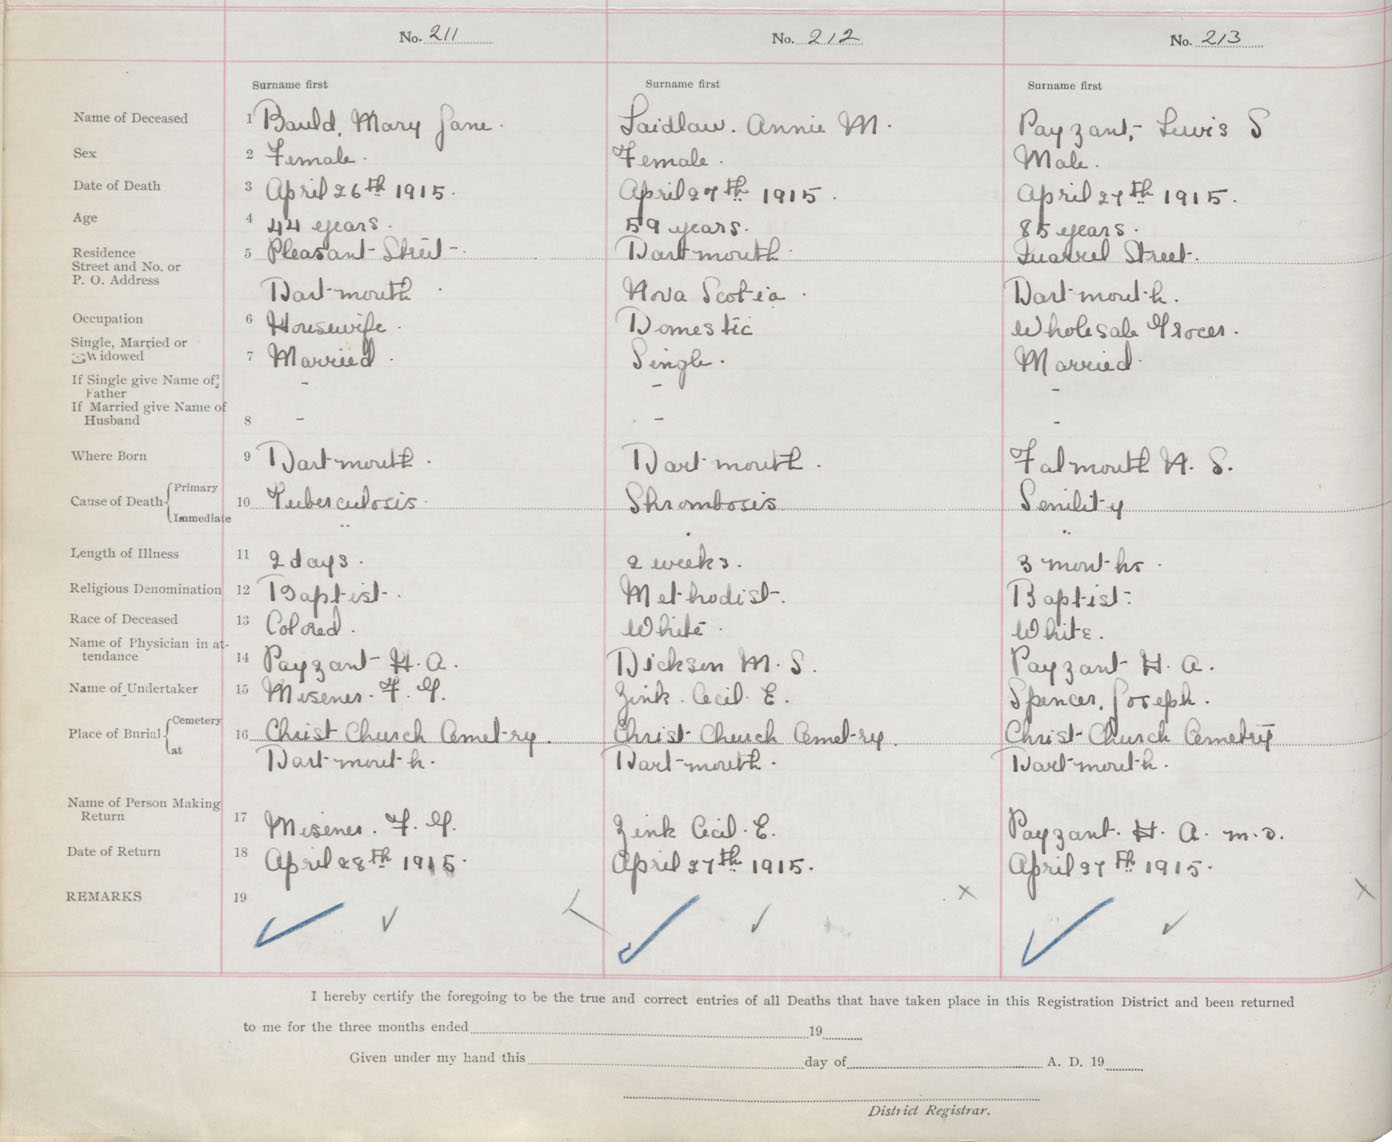 No. 211 No. 212 No. 213
Surname first Surname first Surname first
Name of Deceased 1 Bauld, Mary Jane. Laidlaw. Annie M. Payzant, Lewis S
Sex 2 Female. Female. Male.
Date of Death 3 April 26th 1915. April 27th 1915. April 27th 1915.
Age 4 44 years. 59 years. 85 years.
Residence 5 Pleasant Street. Dartmouth Quarrel Street.
Street and No. or
P. O. Address Dartmouth. Nova Scotia. Dartmouth.
Occupation 6 Housewife. Domestic Wholesale Grocer.
Single, Married or
Widowed 7 Married. Single. Married.
If Single give Name of - - -
Father
If Married give Name of
Husband 8 - - -
Where Born 9 Dartmouth. Dartmouth. Falmouth N. S.
Cause of Death Primary 10 Tuberculosis Thrombosis Senility
Immediate " . "
Length of Illness 11 2 days. 2 weeks. 3 months.
Religious Denomination 12 Baptist. Methodist. Baptist.
Race of Deceased 13 Colored. White. White.
Name of Physician in at-
tendance 14 Payzant H. A. Dickson M. S. Payzant H. A.
Name of Undertaker 15 Misener. F. G. Zink. Cecil E. Spencer, Joseph.
Place of Burial Cemetery 16 Christ Church Cemetry. Christ Church Cemetry. Christ Church Cemetry
at Dartmouth. Dartmouth. Dartmouth.
Name of Person Making
Return 17 Misener. F. G. Zink Cecil. E. Payzant. H. A. M.D.
Date of Return 18 April 28th 1915. April 27th 1915. April 27th 1915.
REMARKS 19
I hereby certify the foregoing to be the true and correct entries of all Deaths that have taken place in this Registration District and been returned
to me for the three months ended 19
Given under my hand this day of A. D. 19
District Registrar.